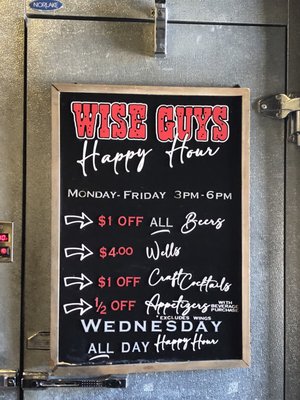 NORLAKE
WISE GUYS
Happy Hour
MONDAY-FRIDAY 3PM-6PM
$1 OFF ALL Beers
$4.00 Wells
$1 OFF Craft Cocktails
1/2 OFF Appetizers WITH BEVERAGE PURCHASE
* EXCLUDES WINGS
WEDNESDAY
ALL DAY Happy Hour